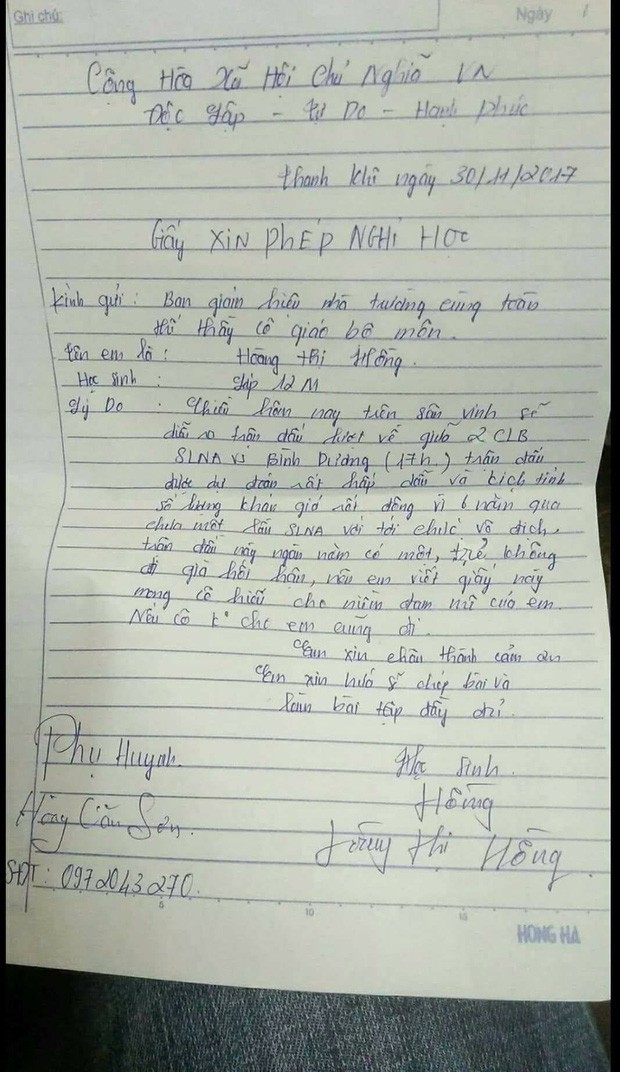 Ghi chú:
Ngày /
Cộng Hòa Xã Hội Chủ Nghĩa VN
Độc Lập - Tự Do - Hạnh phúc
thanh khê ngày 30/11/2017
Giấy XIN PHÉP NGHỈ HỌC
Kính gửi: Ban giám hiệu nhà trường cùng toàn
thể thầy cô giáo bộ môn.
tên em là : Hoàng thị Hồng.
Học sinh : lớp 12M
Lý Do : Chiều hôm nay trên sân vinh sẽ
diễn ra trận đấu lượt về giữa 2 CLB
SLNA vs Bình Dương (17h.) trận đấu
được dự đoán rất hấp dẫn và kịch tính
số lượng khán giả rất đông vì 6 năm qua
chưa một lần SLNA với tới chức vô địch.
trận đấu này ngàn năm có một, trẻ không
đi già hối hận, nên em viết giấy này
mong cô hiểu cho niềm đam mê của em.
Nếu cô k° cho em cũng đi.
Em xin chân thành cảm ơn
Em xin hứa sẽ chép bài và
làm bài tập đầy đủ.
Phụ Huynh.
Học sinh.
Hồng
Sơn.
Thị Hồng.
SĐT: 0972043270.
5 10 15
HONG HA